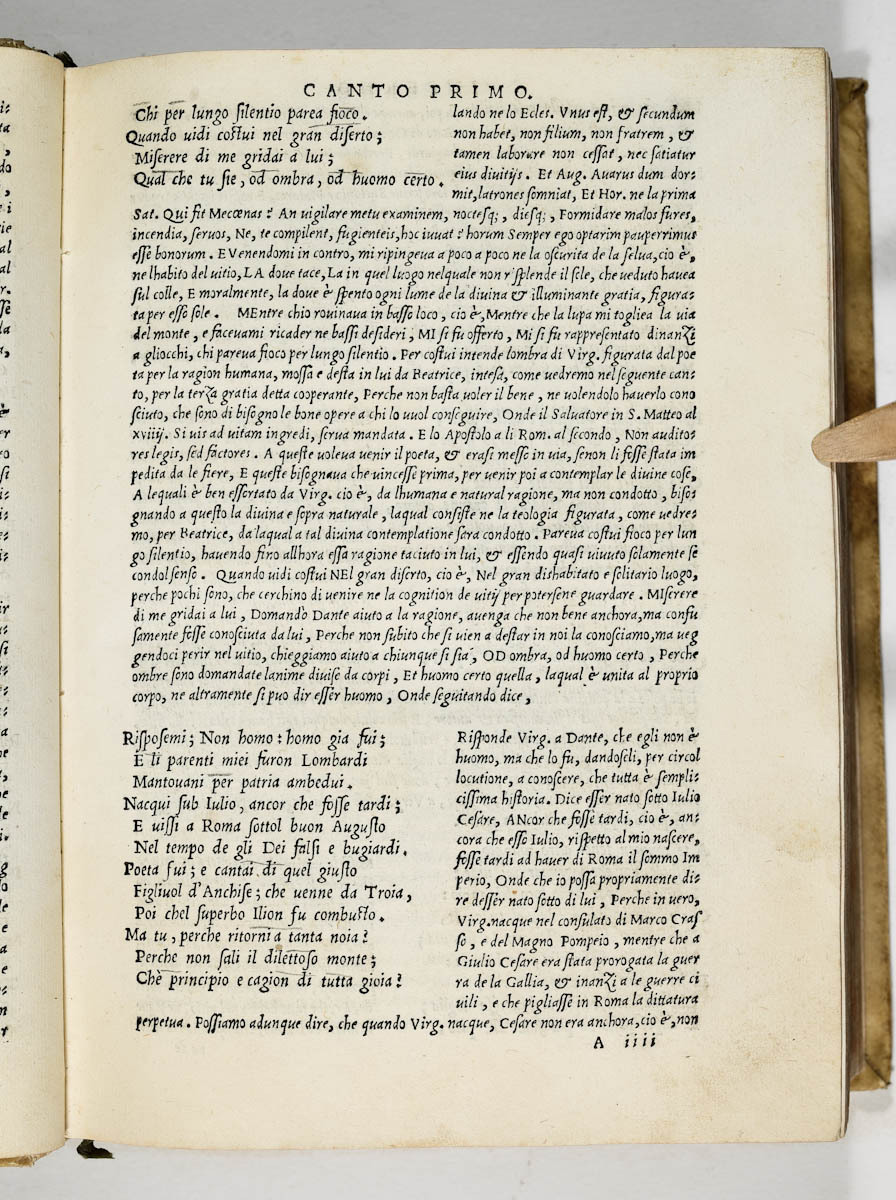 CANTO PRIMO.
Chi per lungo silentio parea fioco.
Quando uidi costui nel gran diserto;
Miserere di me gridai a lui;
Qual che tu sie, od ombra, od huomo certo.
lando ne lo Ecles. Vnus est, & secundum
non habet, non filium, non fratrem, &
tamen laborare non cessat, nec satiatur
eius diuitijs. Et Aug. Auarus dum dor-
mit, latrones somniat, Et Hor. ne la prima
Sat. Qui fit Mecœnas? An uigilare metu examinem, noctesq;, diesq;, Formidare malos fures,
incendia, seruos, Ne, te compilent, fugienteis, hoc iuuat? horum Semper ego optarim pauperrimus
esse bonorum. E Venendomi in contro, mi ripingeua a poco a poco ne la oscurita de la selua, cio è,
ne lhabito del uitio, LA doue tace, La in quel luogo nelquale non risplende il sole, che ueduto hauea
sul colle, E moralmente, la doue è spento ogni lume de la diuina & illuminante gratia, figura-
ta per esso sole. MEntre chio rouinaua in basso loco, cio è, Mentre che la lupa mi togliea la uia
del monte, e faceuami ricader ne bassi desideri, MI si fu offerto, Mi si fu rappresentato dinanzi
a gliocchi, chi pareua fioco per lungo silentio. Per costui intende lombra di Virg. figurata dal poe
ta per la ragion humana, mossa e desta in lui da Beatrice, intesa, come uedremo nel seguente can-
to, per la terza gratia detta cooperante, Perche non basta uoler il bene, ne uolendolo hauerlo cono
sciuto, che sono di bisogno le bone opere a chi lo uuol conseguire, Onde il Saluatore in S. Matteo al
xviiij. Si uis ad uitam ingredi, serua mandata. E lo Apostolo a li Rom. al secondo, Non audito-
res legis, sed factores. A queste uoleua uenir il poeta, & erasi messo in uia, se non li fosse stata im
pedita da le fiere, E queste bisognaua che uincesse prima, per uenir poi a contemplar le diuine cose,
A lequali è ben essortato da Virg. cio è, da lhumana e natural ragione, ma non condotto, biso-
gnando a questo la diuina e sopra naturale, laqual consiste ne la teologia figurata, come uedre-
mo, per Beatrice, da laqual a tal diuina contemplatione sara condotto. Pareua costui fioco per lun
go silentio, hauendo fino allhora essa ragione taciuto in lui, & essendo quasi uiuuto solamente se
condol senso. Quando uidi costui NEl gran diserto, cio è, Nel gran dishabitato e solitario luogo,
perche pochi sono, che cerchino di uenire ne la cognition de uitij per potersene guardare. MIserere
di me gridai a lui, Domandò Dante aiuto a la ragione, auenga che non bene anchora, ma confu
samente fosse conosciuta da lui, Perche non subito che si uien a destar in noi la conosciamo, ma ueg
gendoci perir nel uitio, chieggiamo aiuto a chiunque si sia, OD ombra, od huomo certo, Perche
ombre sono domandate lanime diuise da corpi, Et huomo certo quella, laqual è unita al proprio
corpo, ne altramente si puo dir esser huomo, Onde seguitando dice,
Risposemi; Non homo: homo gia fui;
E li parenti miei furon Lombardi
Mantouani per patria ambedui.
Nacqui sub Iulio, ancor che fosse tardi;
E uissi a Roma sottol buon Augusto
Nel tempo de gli Dei falsi e bugiardi.
Poeta fui; e cantai di quel giusto
Figliuol d'Anchise; che uenne da Troia,
Poi chel superbo Ilion fu combusto.
Ma tu, perche ritorni a tanta noia?
Perche non sali il dilettoso monte;
Chè principio e cagion di tutta gioia?
Risponde Virg. a Dante, che egli non è
huomo, ma che lo fu, dandoseli, per circol
locutione, a conoscere, che tutta è sempli-
cissima historia. Dice esser nato sotto Iulio
Cesare, ANcor che fosse tardi, cio è, an-
cora che esso Iulio, rispetto al mio nascere,
fosse tardi ad hauer di Roma il sommo Im
perio, Onde che io possa propriamente di-
re desser nato sotto di lui, Perche in uero,
Virg. nacque nel consulato di Marco Cras
so, e del Magno Pompeio, mentre che a
Giulio Cesare era stata prorogata la guer
ra de la Gallia, & inanzi a le guerre ci
uili, e che pigliasse in Roma la dittatura
perpetua. Possiamo adunque dire, che quando Virg. nacque, Cesare non era anchora, cio è, non
A iiii